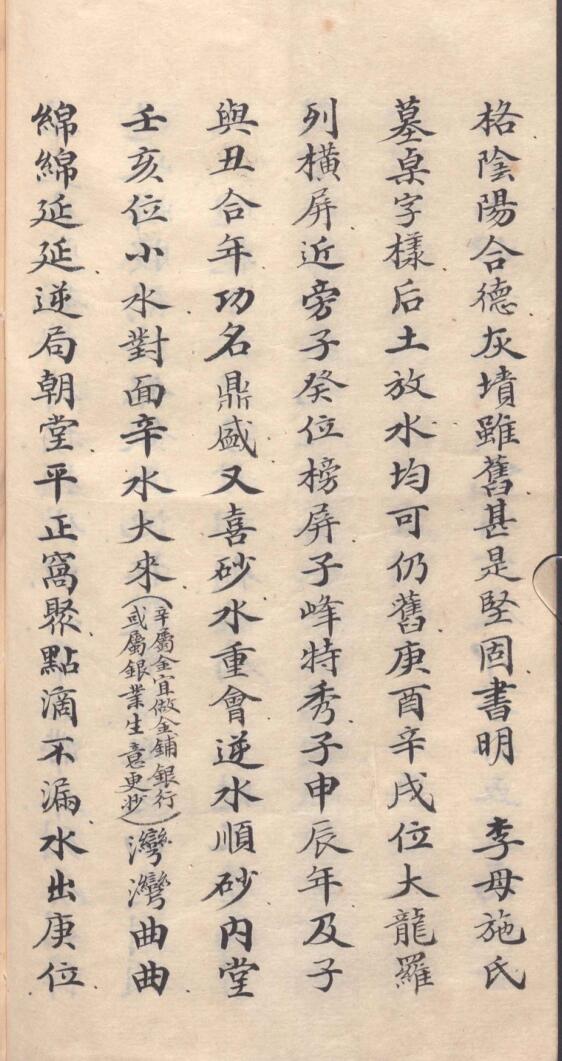 格陰陽合德灰墳雖舊甚是堅固書明　李母施氏
墓桌字樣后土放水均可仍舊庚酉辛戌位大龍羅
列橫屏近旁子癸位榜屏子峰特秀子申辰年及子
與丑合年功名鼎盛又喜砂水重會逆水順砂內堂
壬亥位小水對面辛水大來(辛屬金宜做金鋪銀行或屬銀業生意更妙)灣灣曲曲
綿綿延延逆局朝堂平正窩聚點滴不漏水出庚位